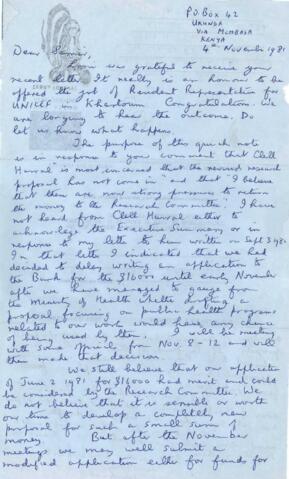 P.O. Box 42
UKUNDA
VIA MOMBASA
KENYA
4th November 1981
Dear
was grateful to receive your
recent letter. It really is an honour to be
offered the job of Resident Representative for
UNICEF in Khartoum. Congratulations. We
are longing to hear the outcome. Do
let us know what happens.
The purpose of this quick note
is in response to your comment that Clell
is "most concerned that the revised research
proposal has not come in" and that "I believe
that there are now strong pressures to return
the money to the Research Committee". I have
not heard from Clell either to
acknowledge the Executive Summary or in
response to my letter to him written on Sept 3 1981
In that letter I indicated that we had
decided to delay writing an application to
the Bank for the $16000 until early November
after we have managed to gauge from
the Ministry of Health whether drafting a
proposal focusing on public health programs
related to our work would have any chance
of being used by them. I will be meeting
with some officials from Nov. 8-12 and will
then made that decision.
We still believe that our application
of June 2 1981 for $16000 had merit and could
be considered by the Research Committee. We
do not believe that it is sensible or worth
our time to develop a completely new
proposal for such a small sum of
money. But after the November
meetings we may well submit a
modified application either for funds for